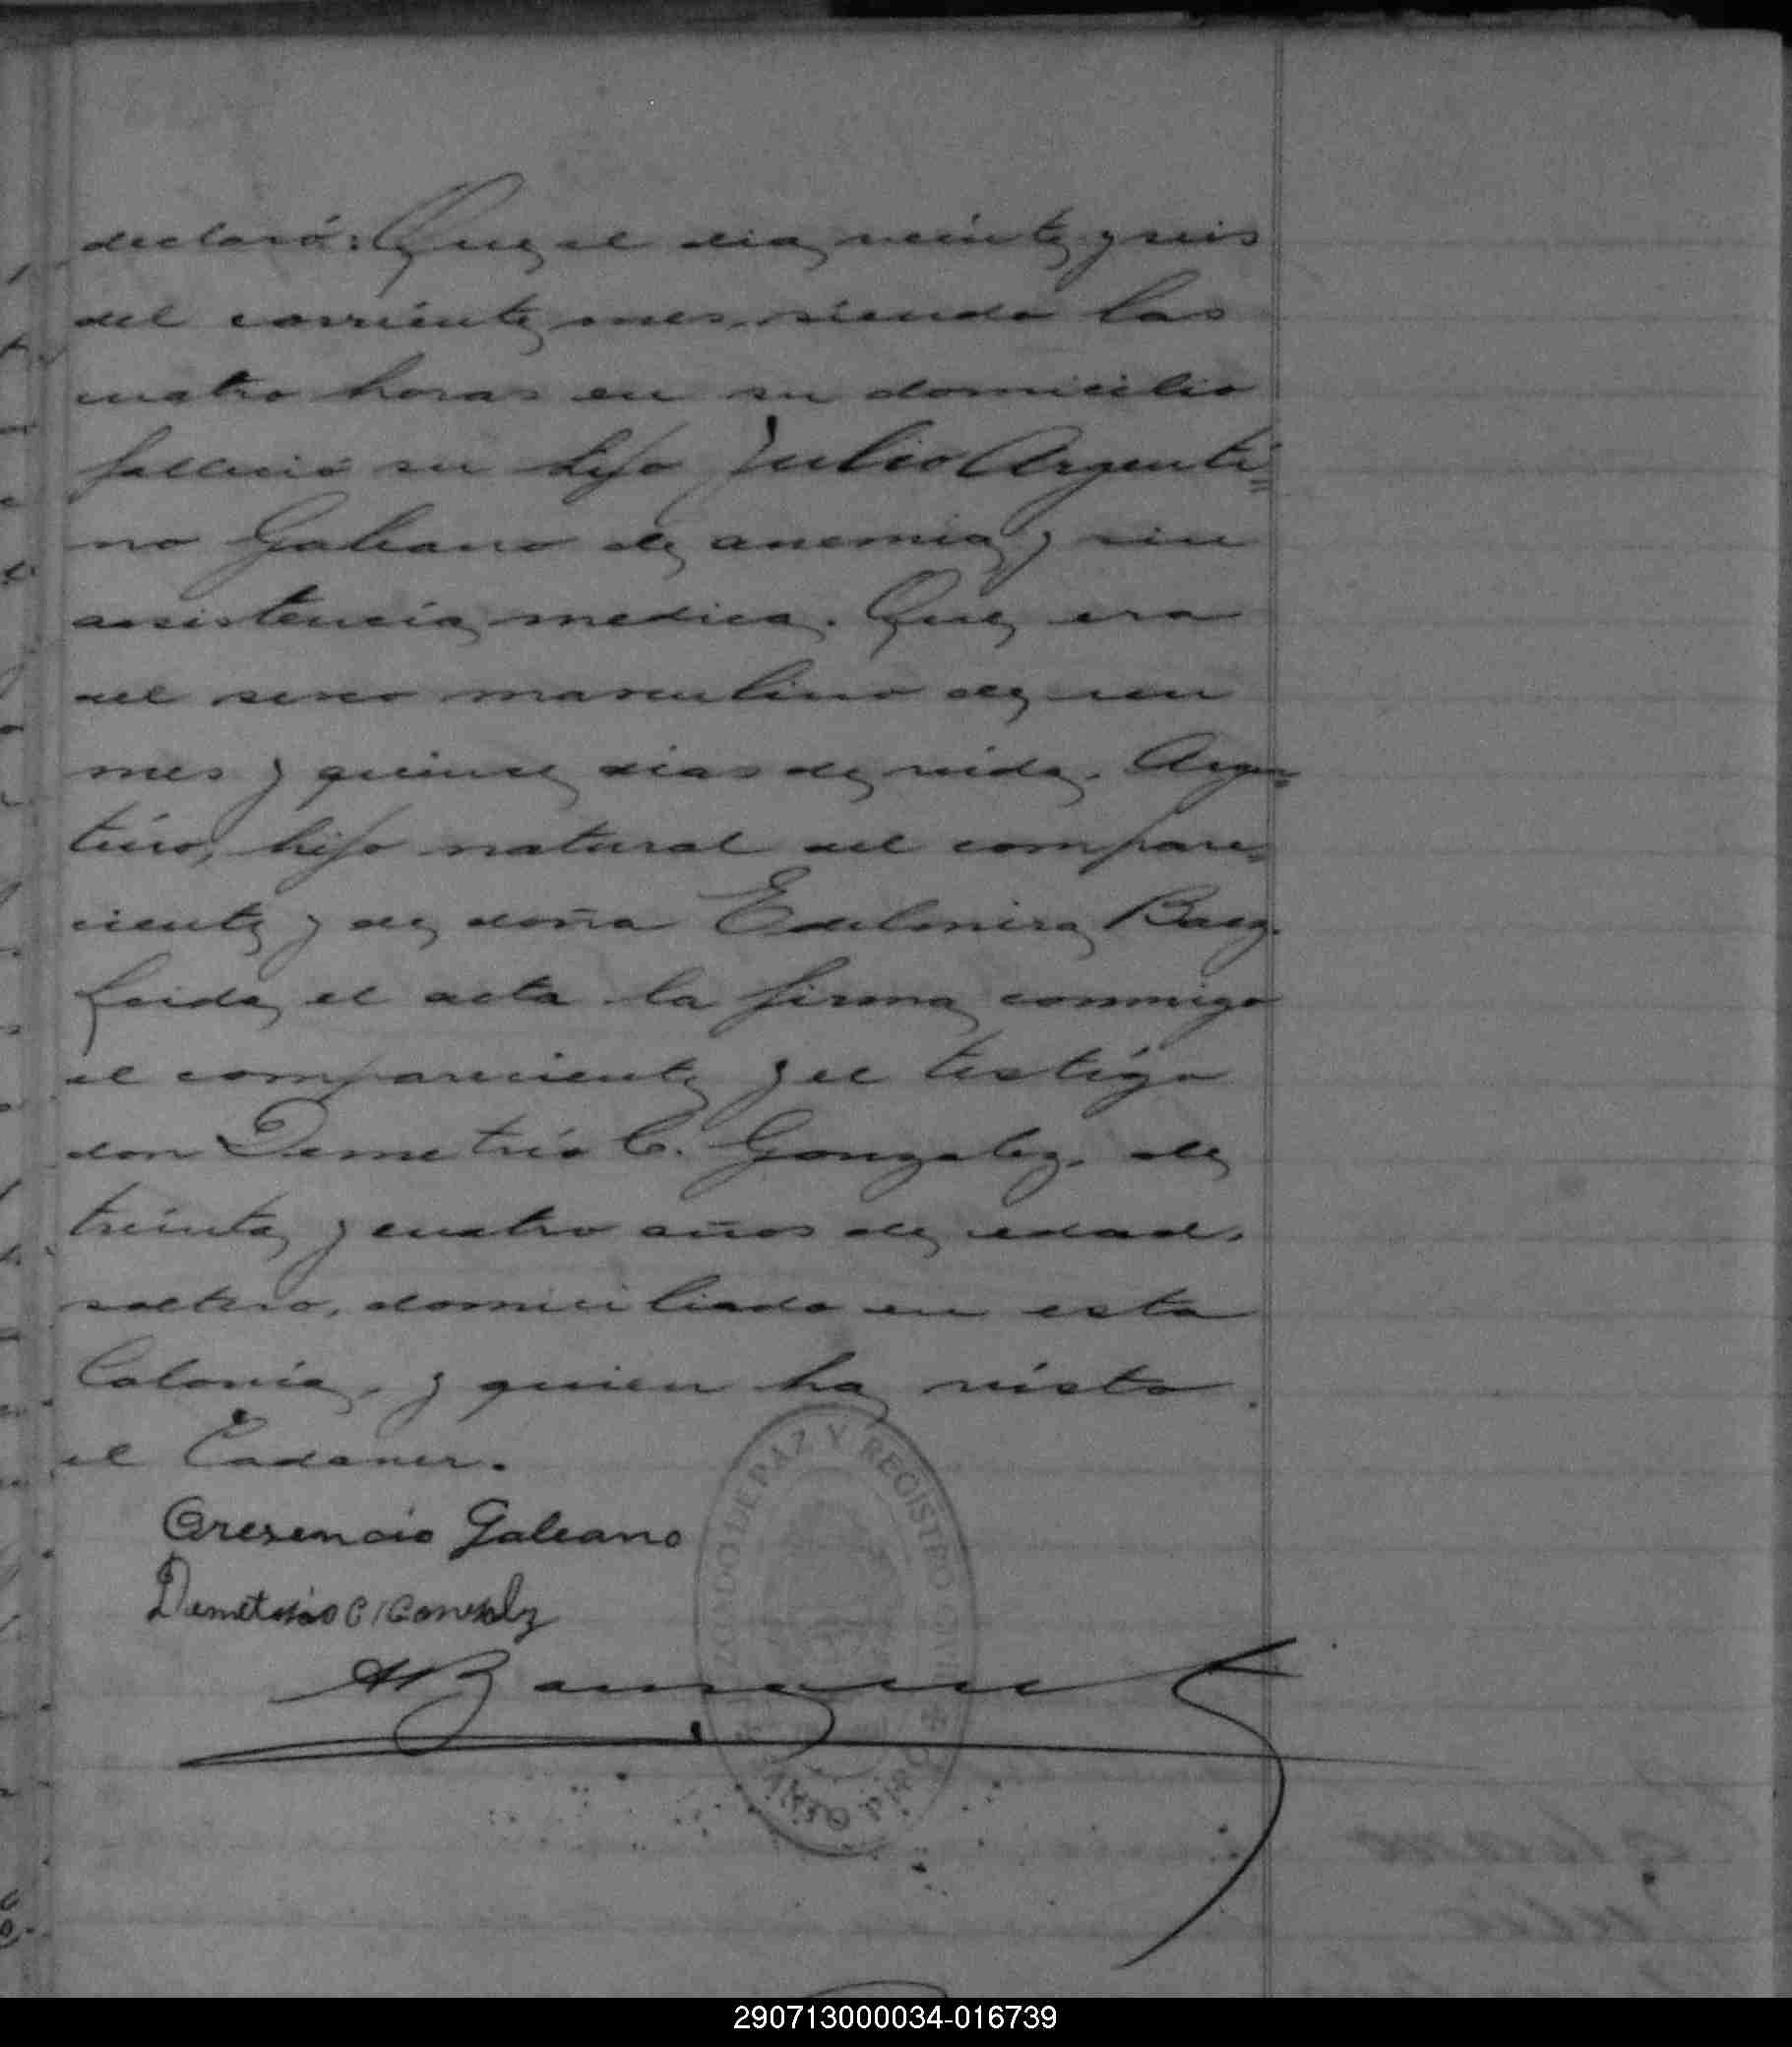 declaró: Que el dia veinte y seis
del corriente mes, siendo las
cuatro horas en su domicilio
fallecio su hijo Julio Argenti=
no Galeano de anemia y sin
assistencia medica. Que era
del sexo masculino de un
mes y quince dias de vida. Argen=
tino, hijo natural del compare=
ciente y de doña Edelmira Baez.
Leida el acta la firma conmigo
el compareciente y el testigo
don Demetrio C. Gonzalez, de
treinta y cuatro años de edad,
soltero, domiciliado en esta
Colonia, y quien ha visto
el Cadaver.
Cresencio Galeano
Demetrio C Gonzalz
JUZGADO DE PAZ Y REGISTRO CIVIL
290713000034-016739